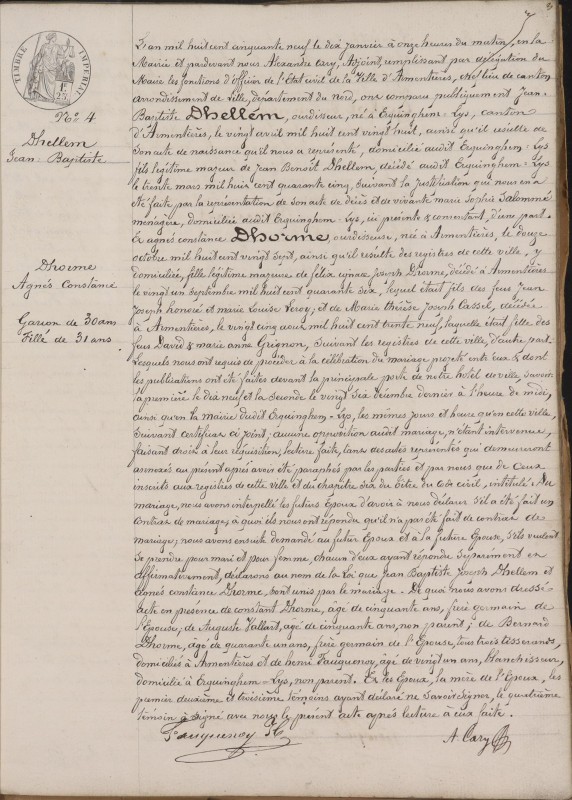 7
TIMBRE IMPERIAL
N° 4
Dhellem
Jean-Baptiste
Dhorme
Agnès Constance
Garçon de 30 ans
Fille de 31 ans
L'an mil huit cent cinquante neuf le dix janvier à onze heures du matin, en la
Mairie et pardevant nous Alexandre Cary, Adjoint, remplissant par délégation du
Maire les fonctions d'officier de l'Etat civil de la Ville d'Armentières, chef lieu de canton
arrondissement de Lille, département du Nord, ont comparu publiquement Jean-
Baptiste Dhellem, ourdisseur, né à Erquinghem-Lys, canton
d'Armentières, le vingt avril mil huit cent vingt huit, ainsi qu'il résulte de
son acte de naissance qu'il nous a représenté, domicilié audit Erquinghem-Lys
fils légitime majeur de Jean Benoit Dhellem, décédé audit Erquinghem-Lys
le trente mars mil huit cent quarante cinq, suivant la justification qui nous en a
été faite par la représentation de son acte de décès et de vivante marie Sophie Salomé
ménagère, domiciliée audit Erquinghem-Lys, ici présente & consentant, d'une part
Et agnès constance Dhorme, ourdisseuse, née à Armentières, le douze
octobre mil huit cent vingt sept, ainsi qu'il résulte des registres de cette ville, y
domiciliée, fille légitime majeure de félix ignace Joseph Dhorme, décédé à Armentières
le vingt un septembre mil huit cent quarante six, lequel était fils des feus Jean
Joseph honoré et marie Louise Leroy; et de Marie Thérèse Joseph Cassel, décédée
à Armentières, le vingt cinq aout mil huit cent trente neuf, laquelle était fille des
feus David & marie anne Grignon, suivant les registres de cette ville, d'autre part
Lesquels nous ont requis de procéder à la célébration du mariage projeté entre eux & dont
les publications ont été faites devant la principale porte de notre hotel de ville savoir
la première le dix neuf et la seconde le vingt six décembre dernier à l'heure de midi,
ainsi qu'en la mairie dudit Erquinghem-Lys, les mêmes jours et heure qu'en cette ville,
suivant certificat ci joint; aucune opposition audit mariage, n'étant intervenue,
faisant droit à leur réquisition, lecture faite, tant des actes représentés qui demeureront
annexés au présent après avoir été paraphés par les parties et par nous que de ceux
inscrits aux registres de cette ville et du chapitre six du titre du Code civil, intitulé: Du
mariage, nous avons interpellé les futurs Epoux d'avoir à nous déclarer s'il a été fait un
contrat de mariage; à quoi ils nous ont répondu qu'il n'a pas été fait de contrat de
mariage; nous avons ensuite demandé au futur Epoux et à la future Epouse, s'ils veulent
se prendre pour mari et pour femme, chacun d'eux ayant répondu séparément et
affirmativement, déclarons au nom de la Loi que Jean Baptiste Joseph Dhellem et
agnès constance Dhorme, sont unis par le mariage. De quoi nous avons dressé
acte en présence de constant Dhorme, agé de cinquante ans, frère germain de
l'Epouse; de Auguste Vallart, agé de cinquante ans, non parent; de Bernard
Dhorme, agé de quarante un ans, frère germain de l'Epouse, tous trois tisserands,
domiciliés à Armentières et de henri Fauquenoy, agé de vingt un ans, blanchisseur,
domicilié à Erquinghem-Lys, non parent. Et les Epoux, la mère de l'Epoux, les
premier deuxième et troisième témoins ayant déclaré ne savoir signer, le quatrième
témoin a signé avec nous le présent acte après lecture à eux faite.
Fauquenoy H
A. Cary